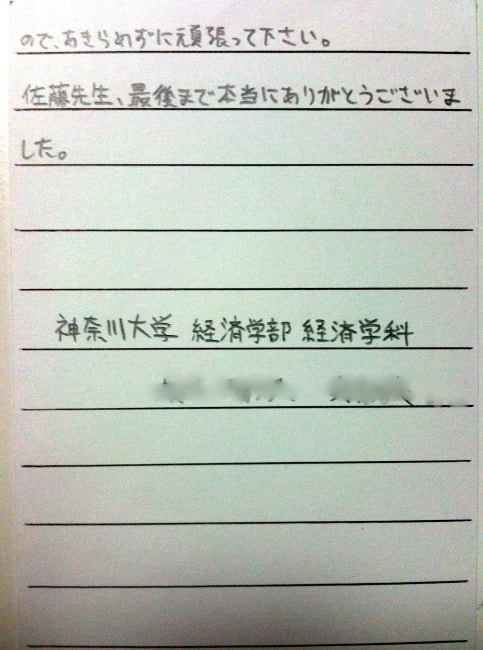 ので、あきらめずに頑張って下さい。
佐藤先生、最後まで本当にありがとうございま
した。
神奈川大学 経済学部 経済学科